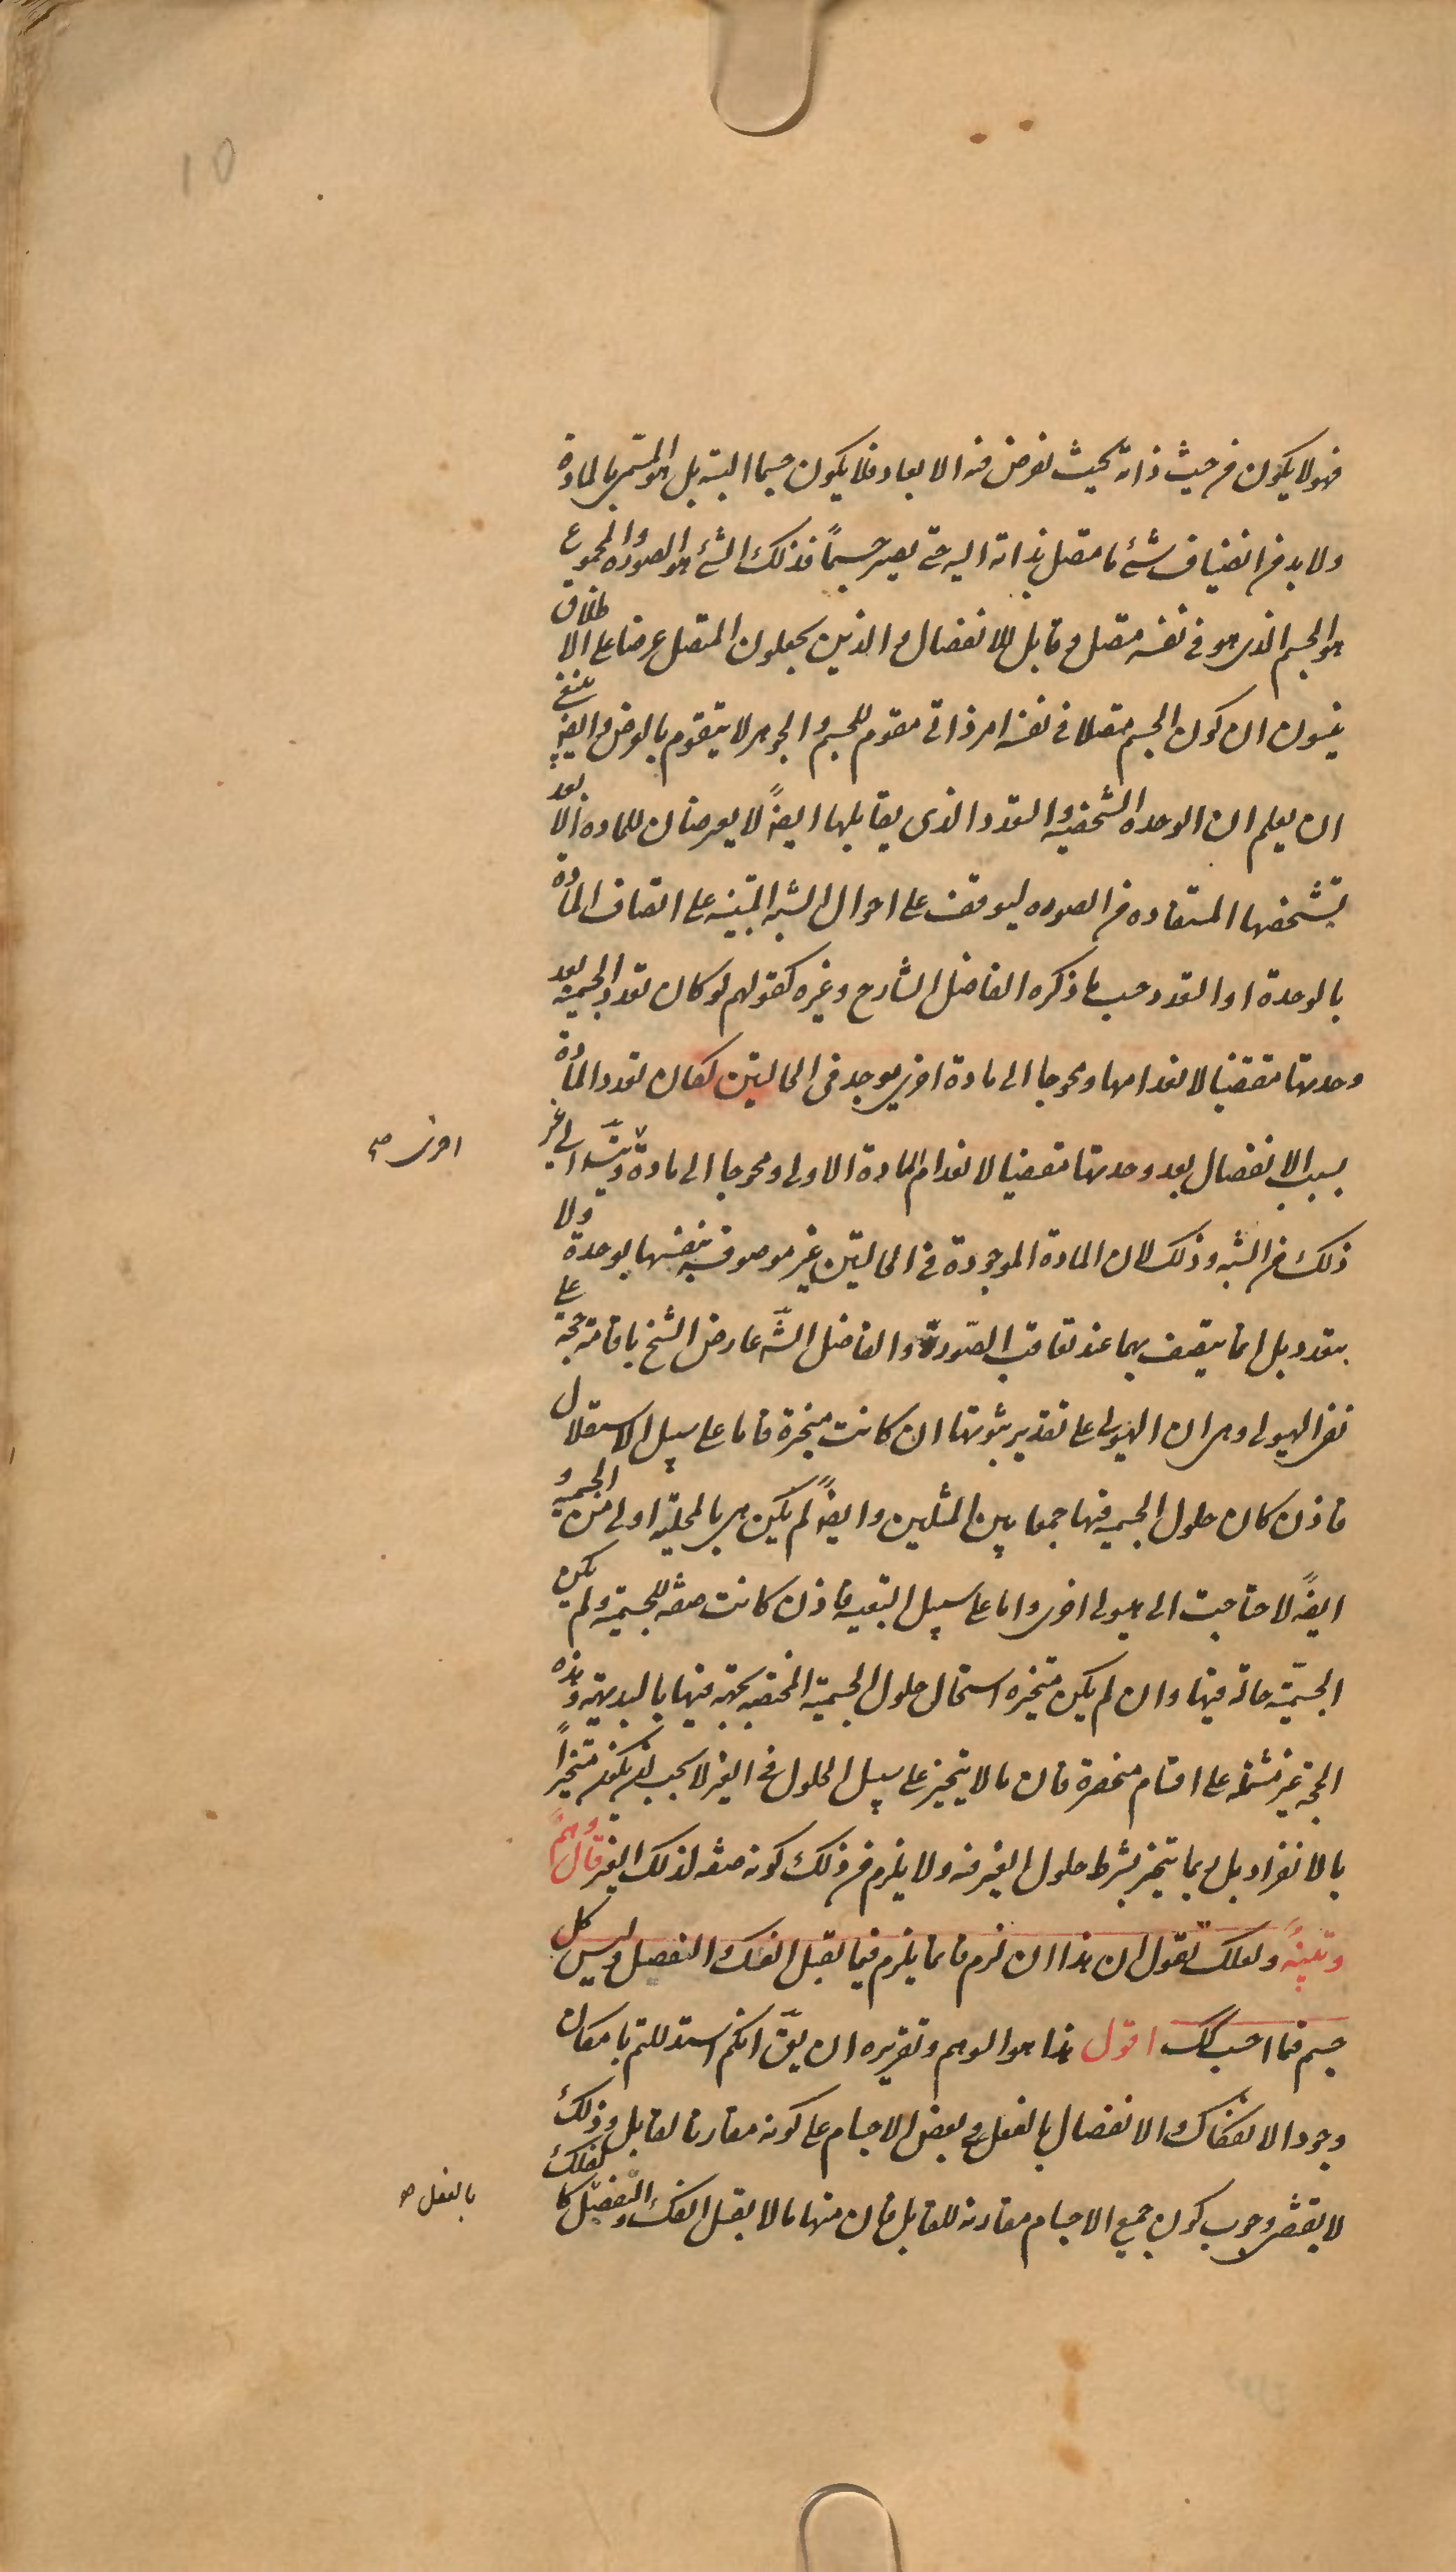 فهو لا يكون من حيث ذاته بحيث يفرض فيه الابعاد فلا يكون جسما البتة بل هو المسمى بالمادة
ولا بد من انضياف شئ ما متصل بذاته اليه حتى يصير جسماً فذلك الشئ هو الصوره والمجموع
هو الجسم الذى هو فى نفسه متصل وقابل للانفصال والذين يجعلون المتصل عرضا على الاطلاق
ينسون ان كون الجسم متصلا فى نفسه امر ذاتى مقوم للجسم والجوهر لا يتقوم بالعرض وايضا ينبغى
ان يعلم ان الوحده الشخصيه والتعدد الذى يقابلها ايضً لا يعرضان للماده الا بعد
تشخصها المستفاده من الصوره ليوقف على احوال الشبه المبتنيه على اتصاف المادة
بالوحدة او التعدد حسب ما ذكره الفاضل الشارح وغيره كقولهم لو كان تعدد الجسميه بعد
وحدتها مقتضيا لانعدامها ومحوجا الى مادة اخرى يوجد فى الحالتين لكان تعدد المادة
بسبب الانفصال بعد وحدتها مقتضيا لانعدام المادة الاولى ومحوجا الى مادة وتسلسل الى غير
اخرى صح
ذلك من الشبه وذلك لان المادة الموجودة فى الحالتين غير موصوفة بنفسها بوحدة ولا
بتعدد بل انما يتصف بهما عند تعاقب الصورة والفاضل الشَّ عارض الشيخ باقامة حجة على
نفى الهيولى وهى ان الهيولى على تقدير ثبوتها ان كانت متحيزة فاما على سبيل الاستقلال
فاذن كان حلول الجسميه فيها جمعا بين المثلين وايضً لم يكن هى بالمحلية اولى من الجسميه و
ايضً لاحتاجت الى هيولى اخرى واما على سبيل التبعيه فاذن كانت صفه للجسمية ولم يكن
الجسميّة حالة فيها وان لم يكن متحيزه استحال حلول الجسميّة المختصه بجهة فيها بالبديهة وهذه
الحجة غير مشتملة على اقسام منحصرة فان ما لا يتحيز على سبيل الحلول فى الغير لا يجب ان يكون متحيزاً
بالانفراد بل ربما يتحيز بشرط حلول الغير فيه ولا يلزم من ذلك كونه صفه لذلك الغير قال وهمٌ
وتنبيهٌ ولعلك تقول ان هذا ان لزم فانما يلزم فيما يقبل الفك والتفصيل وليس كل
جسم فيما احسب كك اقول هذا هو الوهم وتقريره ان يقَ انكم استدللتم بامكان
وجود الانفكاك والانفصال بالفعل فى بعض الاجسام على كونه مقارنا لقابل وذلك
لا يقتضى وجوب كون جميع الاجسام مقارنة للقابل فان منها ما لا يقبل الفك والتفصيل كالفلك
بالفعل صح
10